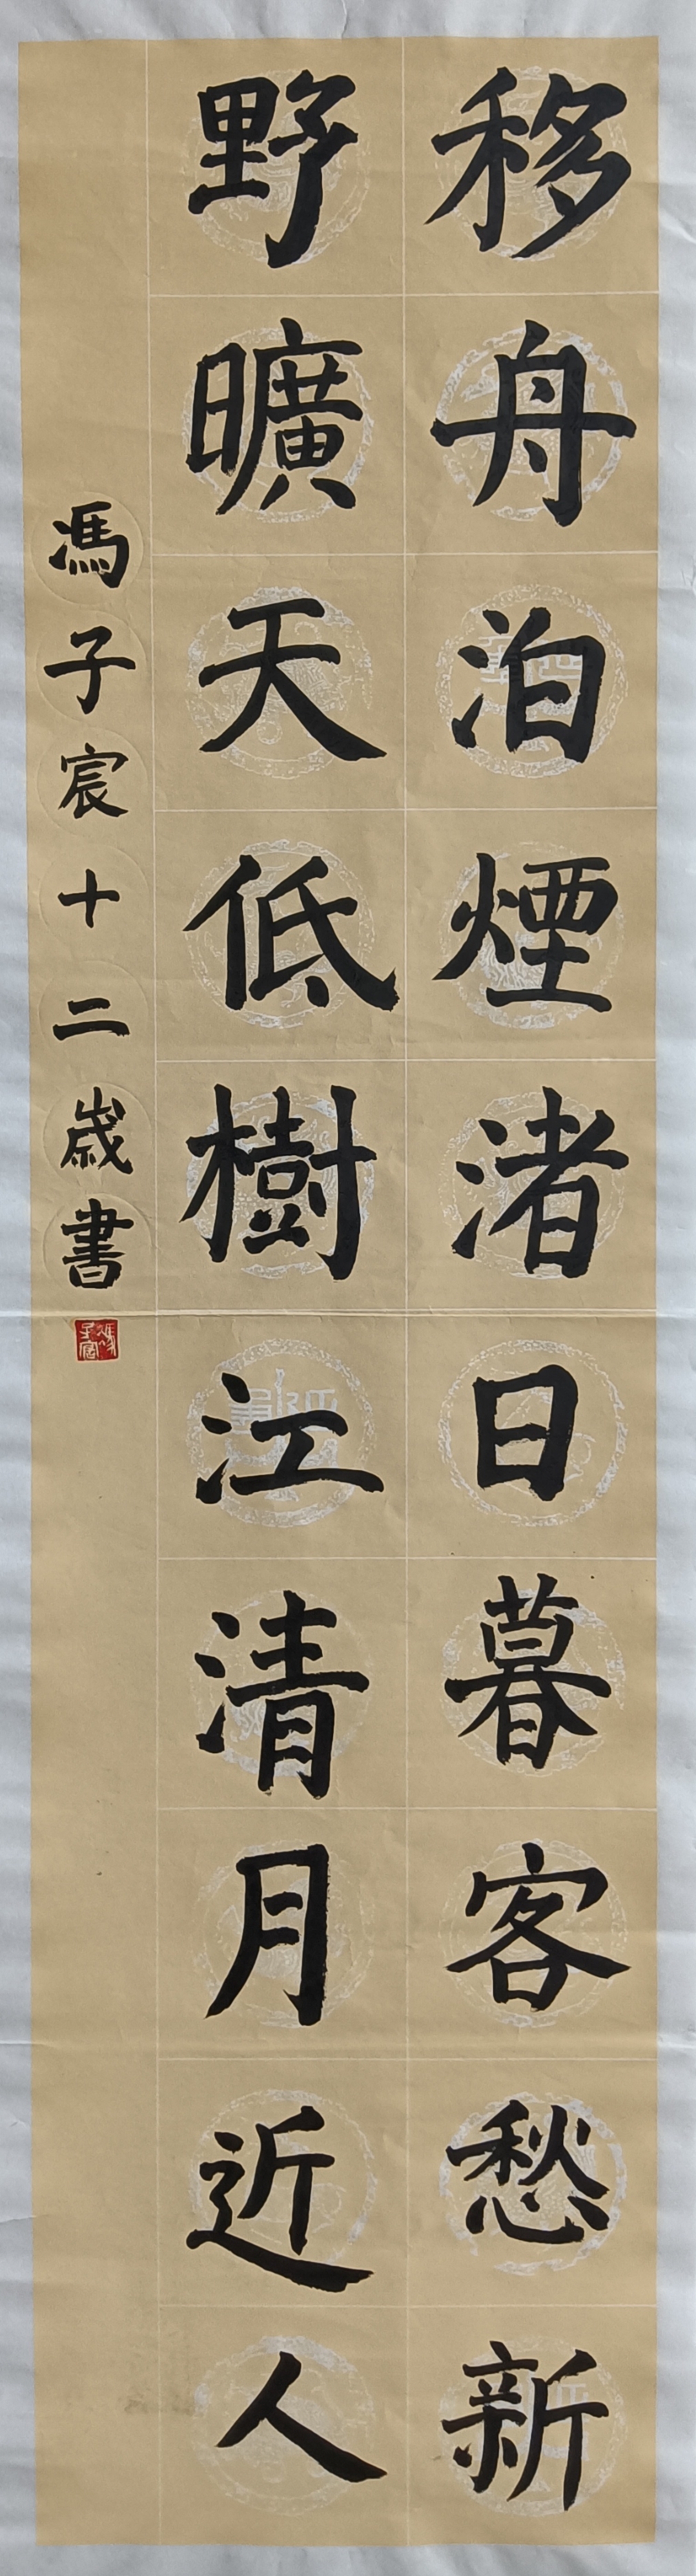 移舟泊煙渚日暮客愁新
野曠天低樹江清月近人
馮子宸十二歳書